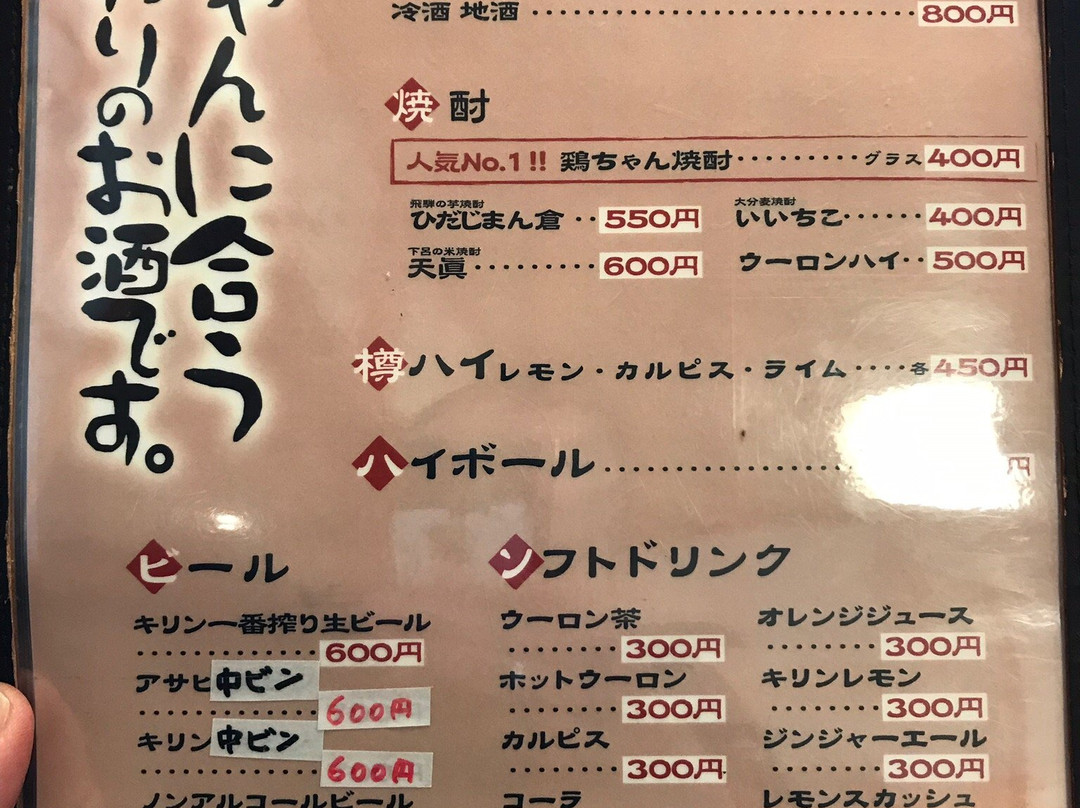 ゃんに合う
りのお酒です。
冷酒 地酒 ・・・・・・・・ 800円
焼酎
人気No.1!! 鶏ちゃん焼酎・・・・・・・・・グラス 400円
飛騨の芋焼酎
ひだじまん倉 ・・ 550円
大分麦焼酎
いいちこ・・・・・・ 400円
下呂の米焼酎
天眞・・・・・・・・・ 600円
ウーロンハイ・・ 500円
樽ハイ レモン・カルピス・ライム ・・・・各 450円
ハイボール・・・・・・・・ 円
ビール
キリン一番搾り生ビール
・・・・・・・・・・・・・ 600円
アサヒ中ビン
・・・・・・・・・・・・・ 600円
キリン中ビン
・・・・・・・・・・・・・ 600円
ノンアルコールビール
ソフトドリンク
ウーロン茶
・・・・・・・・ 300円
ホットウーロン
・・・・・・・・ 300円
カルピス
・・・・・・・・ 300円
コーラ
オレンジジュース
・・・・・・・・ 300円
キリンレモン
・・・・・・・・ 300円
ジンジャーエール
・・・・・・・・ 300円
レモンスカッシュ